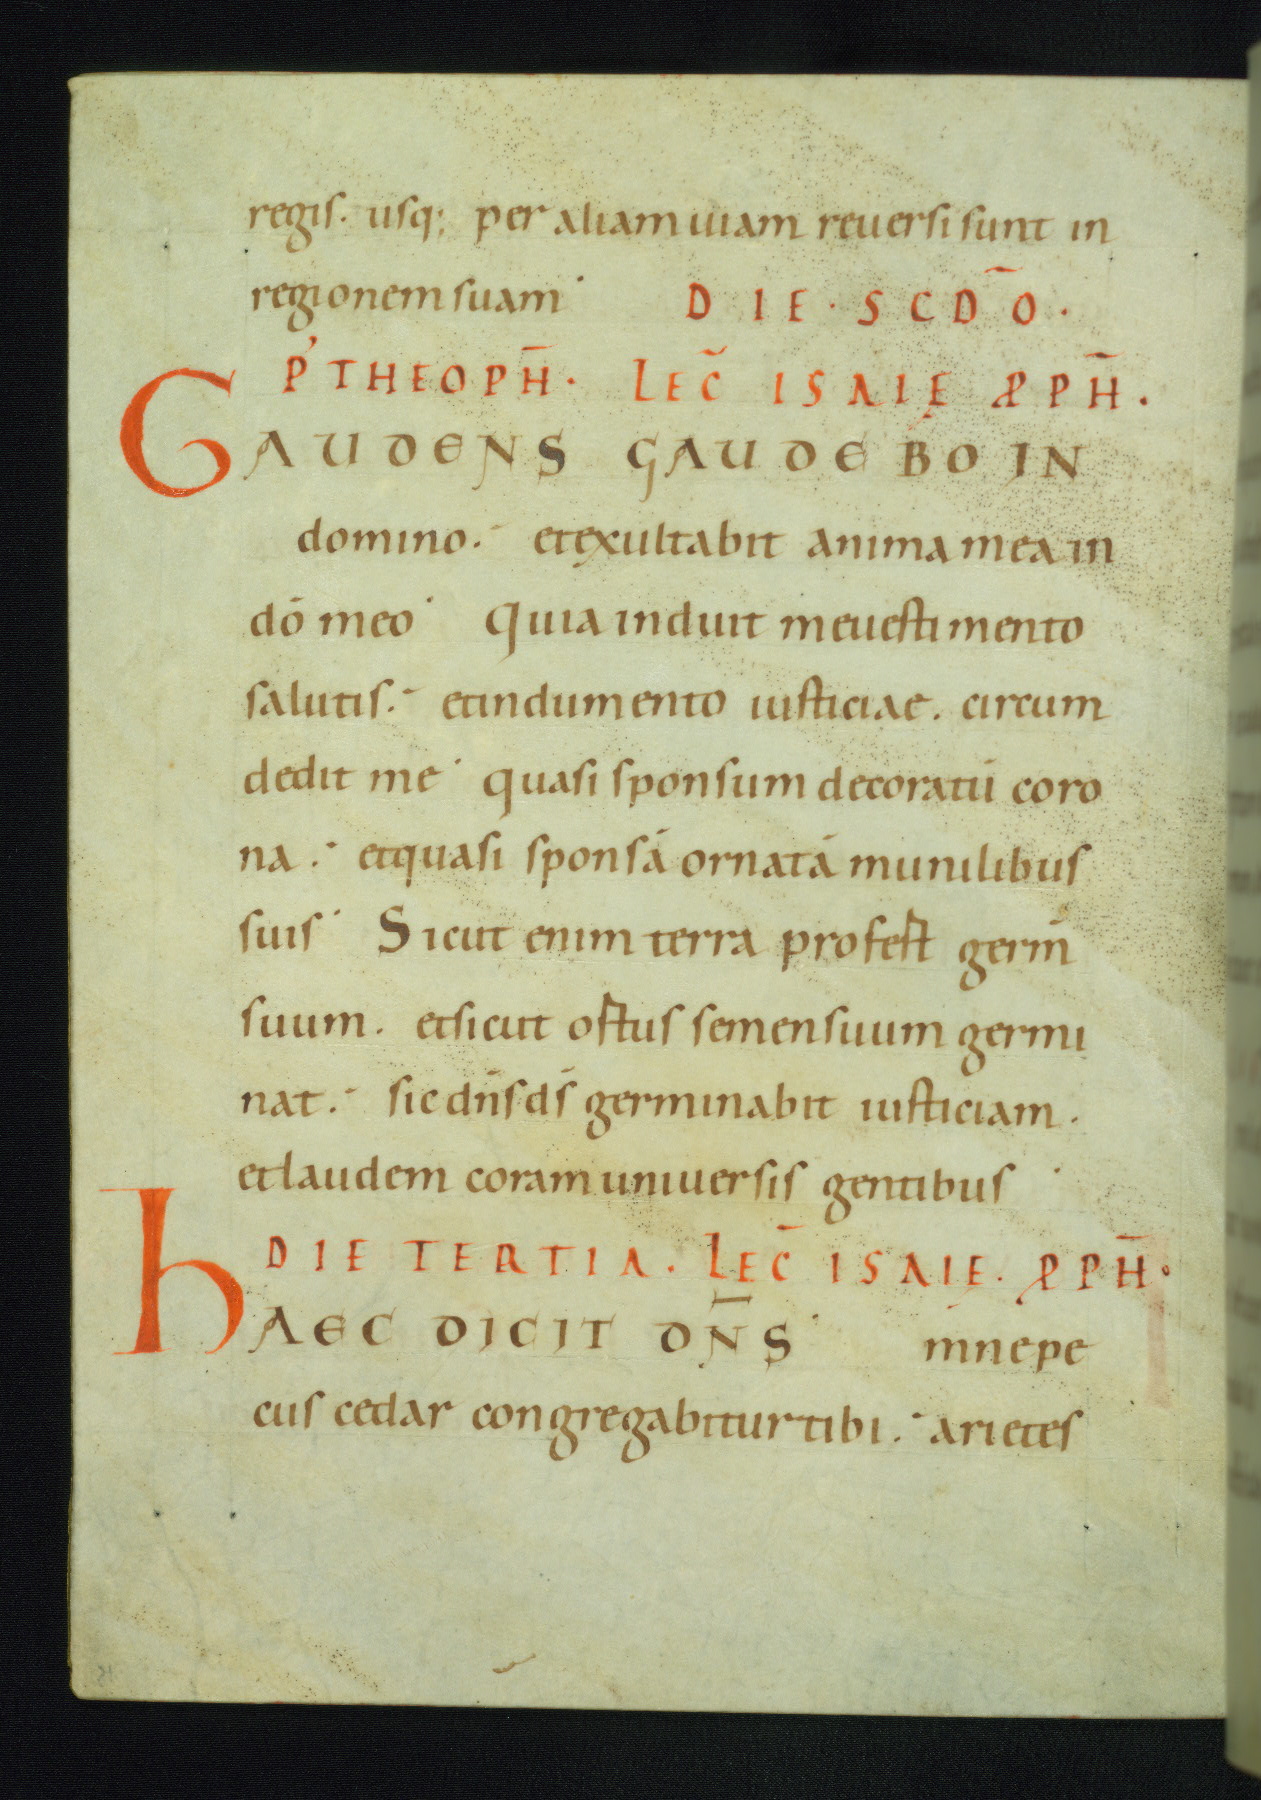 regis. usq; per aliam uiam reuersi sunt in
regionem suam· DIE · SCD̄O ·
P' THEOPH̄ · LEC̄ ISAIĘ PPH̄ ·
GAUDENS GAUDEBO IN
domino. et exultabit anima mea in
dō meo· Quia induit me uestimento
salutis. et indumento iusticiae. circum
dedit me· quasi sponsum decoratū coro
na. et quasi sponsā ornatā munilibus
suis· Sicut enim terra profest germ̄
suum. et sicut ostus semen suum germi
nat. sic dn̄s ds̄ germinabit iusticiam.
et laudem coram uniuersis gentibus·
DIE TERTIA · LEC̄ ISAIĘ · PPH̄ ·
HAEC DICIT DN̄S· mne pe
cus cedar congregabitur tibi. arietes